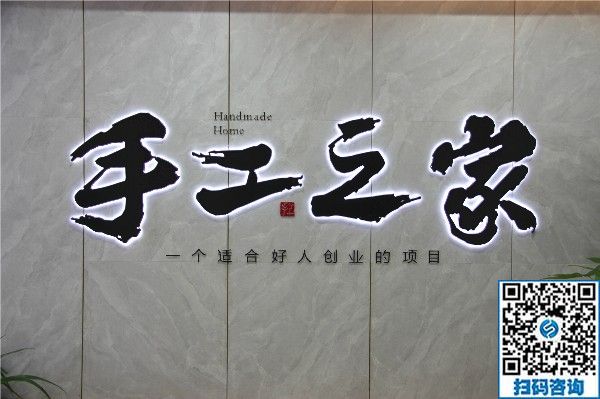 Handmade
Home
手工之家
一个适合好人创业的项目
扫码咨询